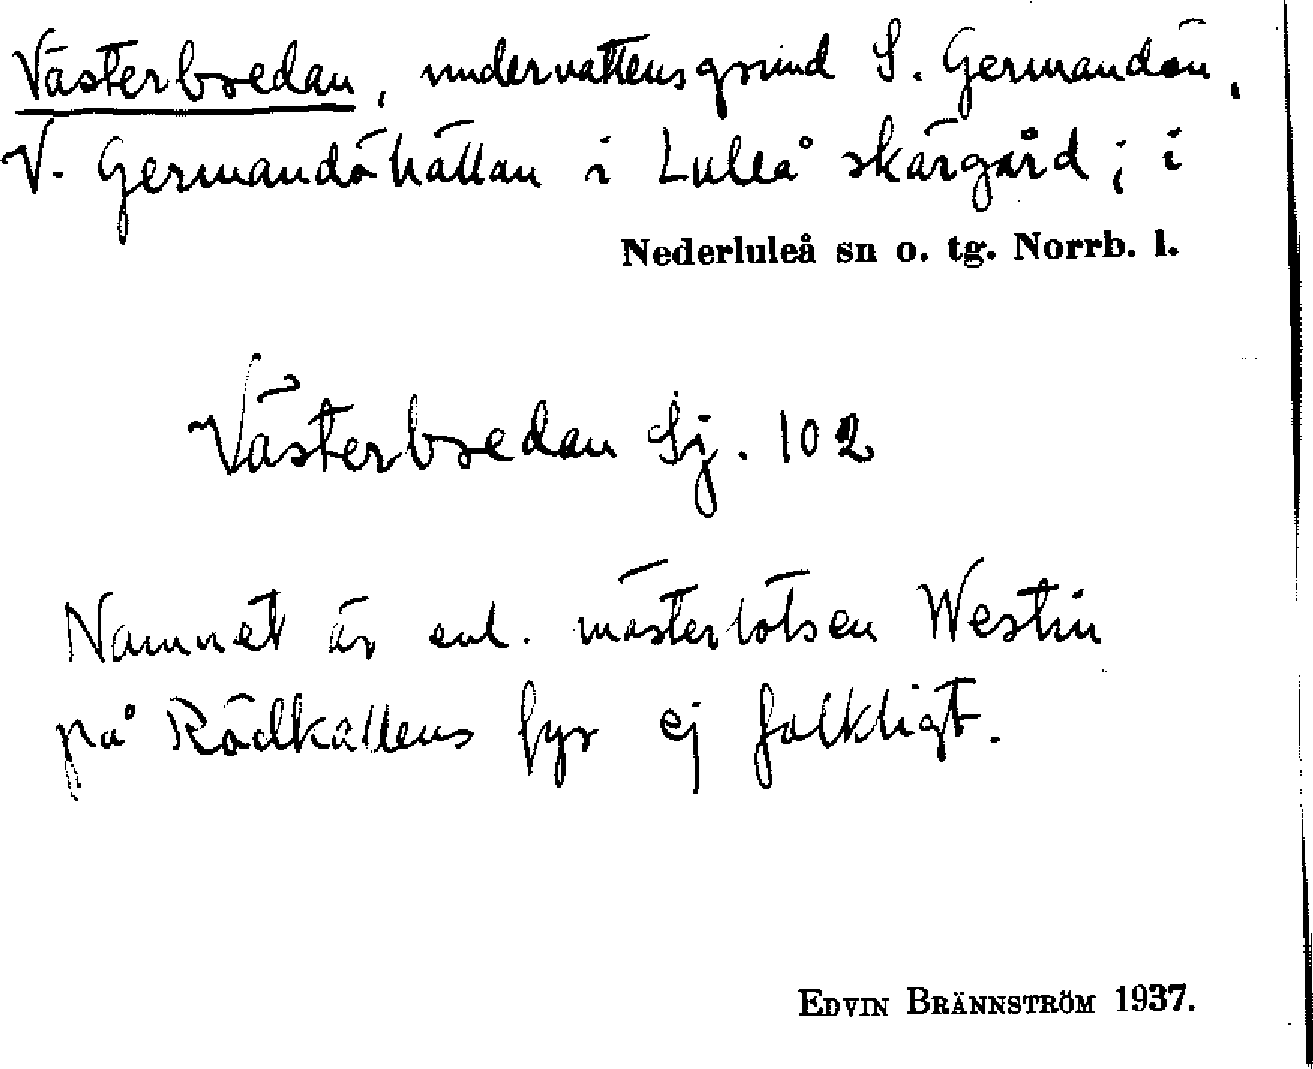 Västerbredan, undervattensgrund S. Germandön,
V. Germandöhällan i Luleå skärgård; i
Nederluleå sn o. tg. Norrb. l.
Västerbredan Sj. 102
Namnet är enl. mästerlotsen Westin
på Rödkallens fyr ej folkligt.
EDVIN BRÄNNSTRÖM 1937.